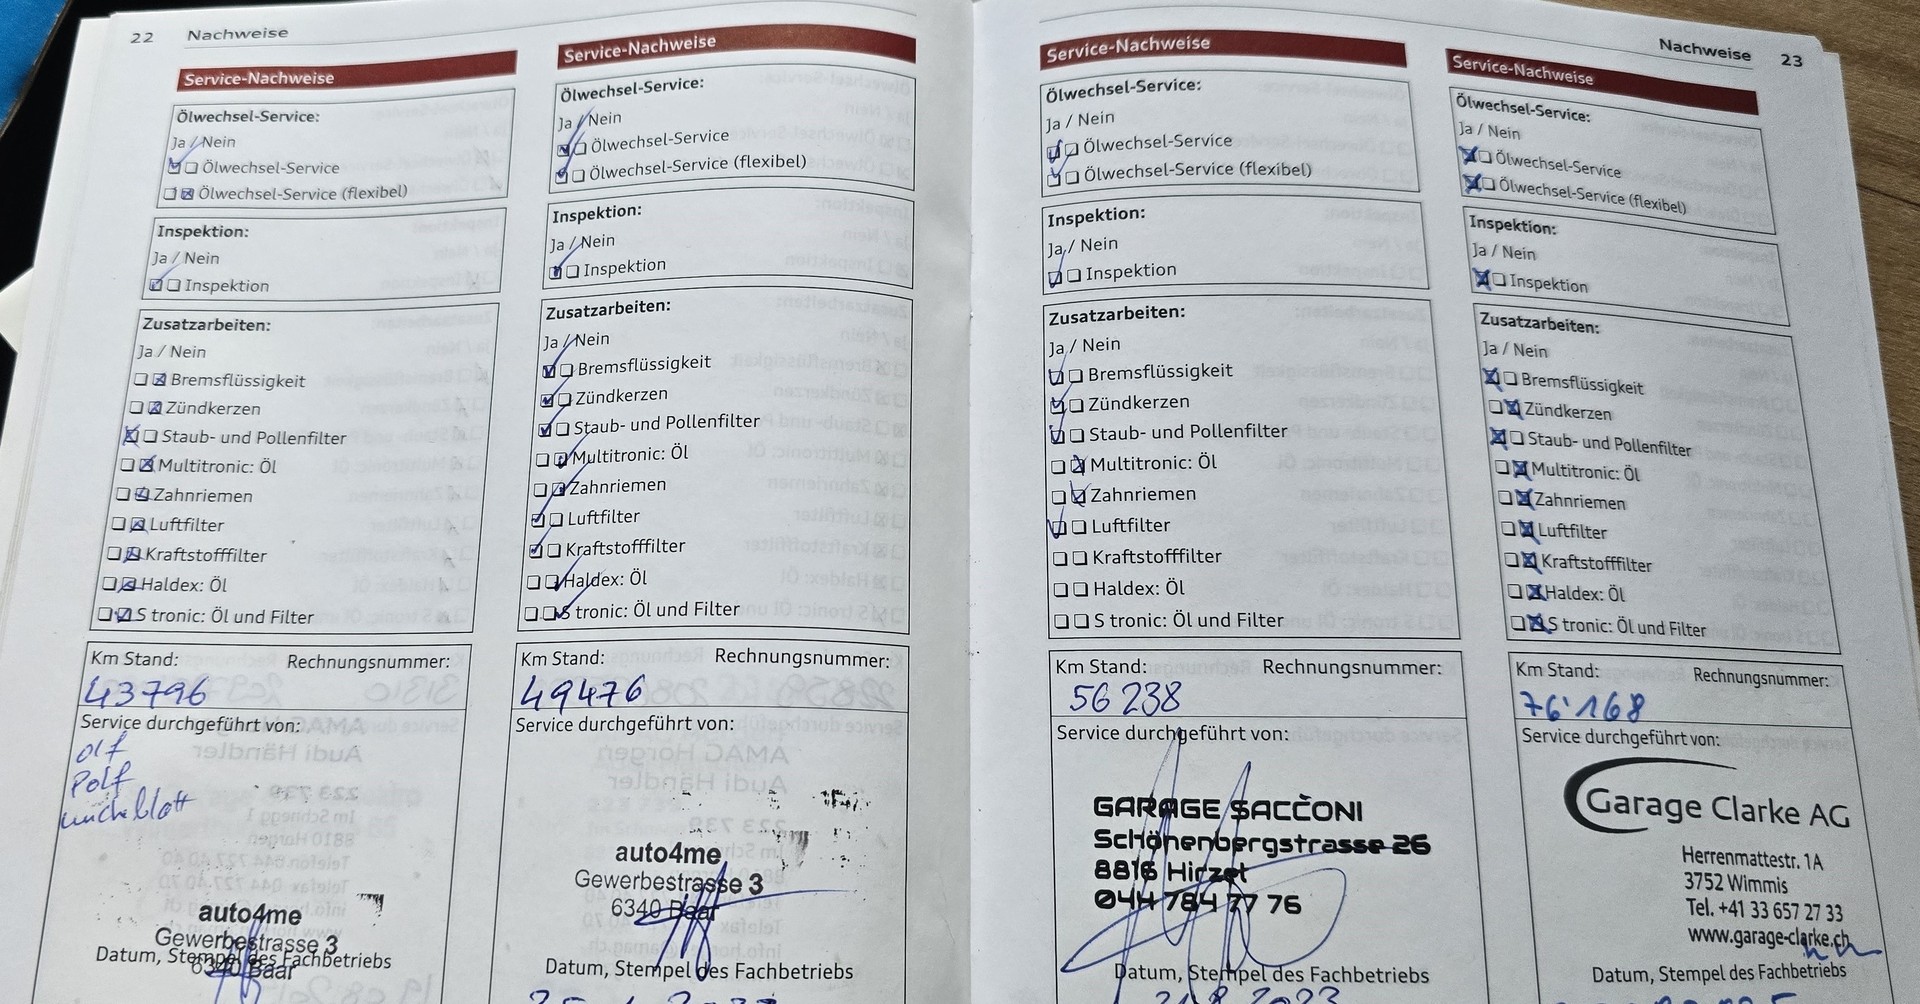 22 Nachweise
Service-Nachweise
Ölwechsel-Service:
Ja / Nein
Ölwechsel-Service
Ölwechsel-Service (flexibel)
Inspektion:
Ja / Nein
Inspektion
Zusatzarbeiten:
Ja / Nein
Bremsflüssigkeit
Zündkerzen
Staub- und Pollenfilter
Multitronic: Öl
Zahnriemen
Luftfilter
Kraftstofffilter
Haldex: Öl
S tronic: Öl und Filter
Km Stand: Rechnungsnummer:
43796
Service durchgeführt von:
auto4me
Gewerbestrasse 3
6340 Baar
Datum, Stempel des Fachbetriebs
Service-Nachweise
Ölwechsel-Service:
Ja / Nein
Ölwechsel-Service
Ölwechsel-Service (flexibel)
Inspektion:
Ja / Nein
Inspektion
Zusatzarbeiten:
Ja / Nein
Bremsflüssigkeit
Zündkerzen
Staub- und Pollenfilter
Multitronic: Öl
Zahnriemen
Luftfilter
Kraftstofffilter
Haldex: Öl
S tronic: Öl und Filter
Km Stand: Rechnungsnummer:
49476
Service durchgeführt von:
auto4me
Gewerbestrasse 3
6340 Baar
Datum, Stempel des Fachbetriebs
Service-Nachweise
Ölwechsel-Service:
Ja / Nein
Ölwechsel-Service
Ölwechsel-Service (flexibel)
Inspektion:
Ja / Nein
Inspektion
Zusatzarbeiten:
Ja / Nein
Bremsflüssigkeit
Zündkerzen
Staub- und Pollenfilter
Multitronic: Öl
Zahnriemen
Luftfilter
Kraftstofffilter
Haldex: Öl
S tronic: Öl und Filter
Km Stand: Rechnungsnummer:
56238
Service durchgeführt von:
GARAGE SACCONI
Schönenbergstrasse 26
8816 Hirzel
044 784 77 76
Datum, Stempel des Fachbetriebs
Nachweise 23
Service-Nachweise
Ölwechsel-Service:
Ja / Nein
Ölwechsel-Service
Ölwechsel-Service (flexibel)
Inspektion:
Ja / Nein
Inspektion
Zusatzarbeiten:
Ja / Nein
Bremsflüssigkeit
Zündkerzen
Staub- und Pollenfilter
Multitronic: Öl
Zahnriemen
Luftfilter
Kraftstofffilter
Haldex: Öl
S tronic: Öl und Filter
Km Stand: Rechnungsnummer:
76'168
Service durchgeführt von:
Garage Clarke AG
Herrenmattestr. 1A
3752 Wimmis
Tel. +41 33 657 27 33
www.garage-clarke.ch
Datum, Stempel des Fachbetriebs